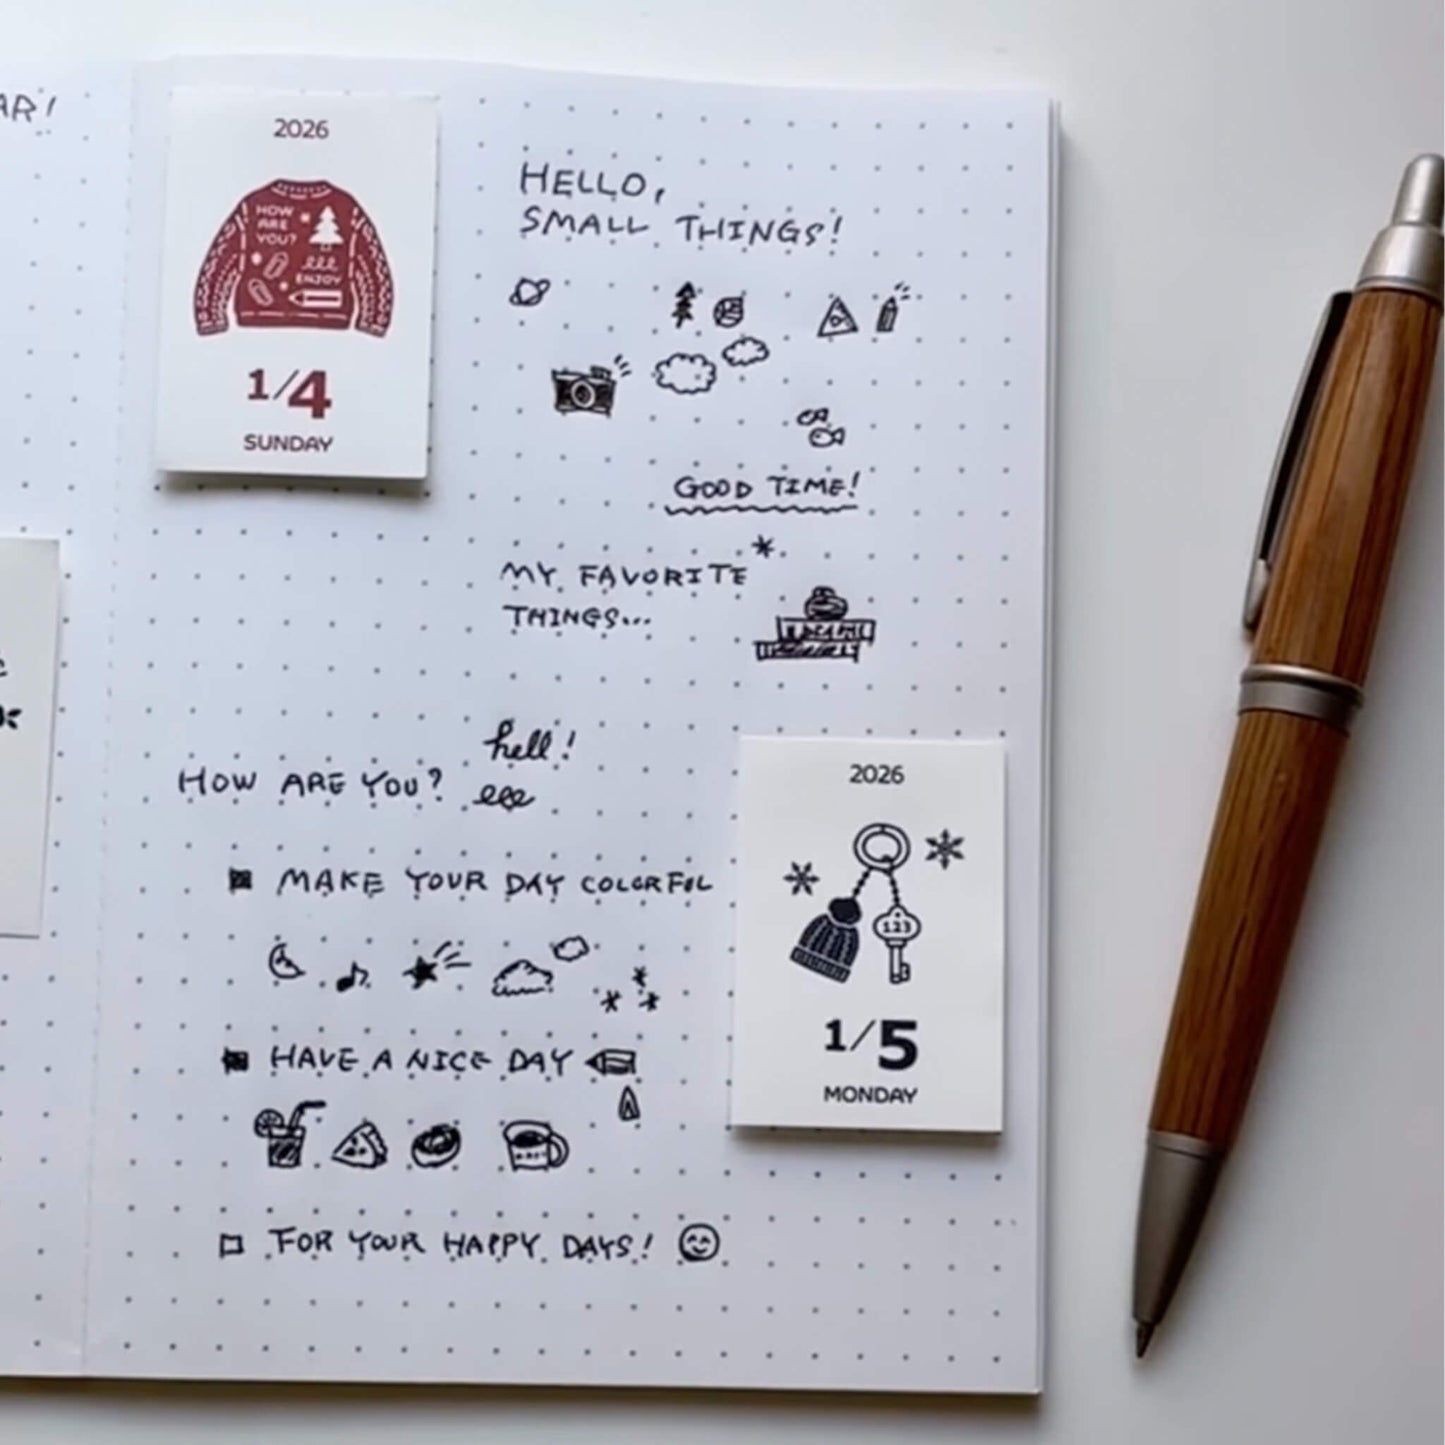 AR!
2026
HOW
ARE
YOU?
ENJOY
1/4
SUNDAY
HELLO,
SMALL THINGS!
GOOD TIME!
MY FAVORITE
THINGS...
HOW ARE YOU?
hell!
MAKE YOUR DAY COLORFUL
HAVE A NICE DAY
FOR YOUR HAPPY DAYS!
2026
123
1/5
MONDAY